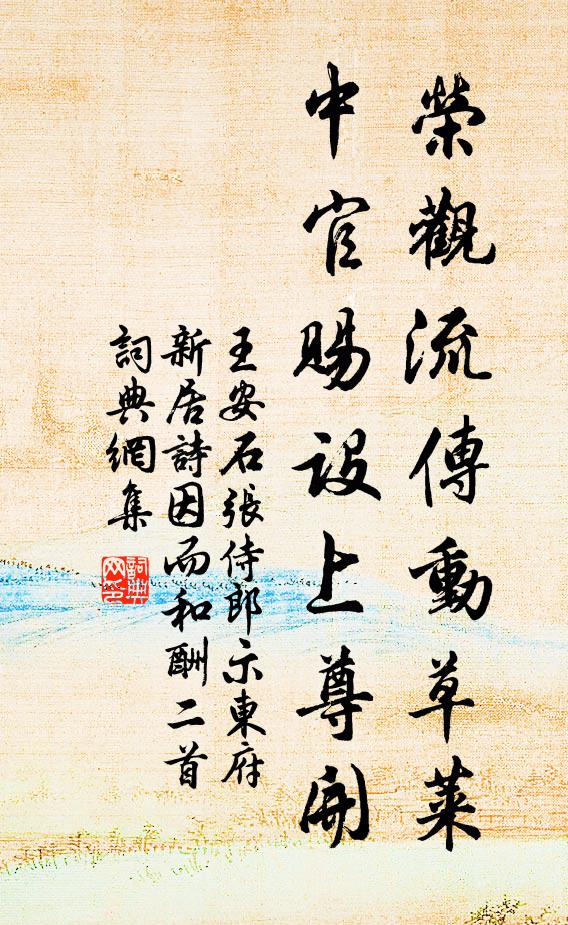 榮觀流傳動草萊
中官賜設上尊開
王安石張侍郎示東府
新居詩因而和酬二首
詞典網集